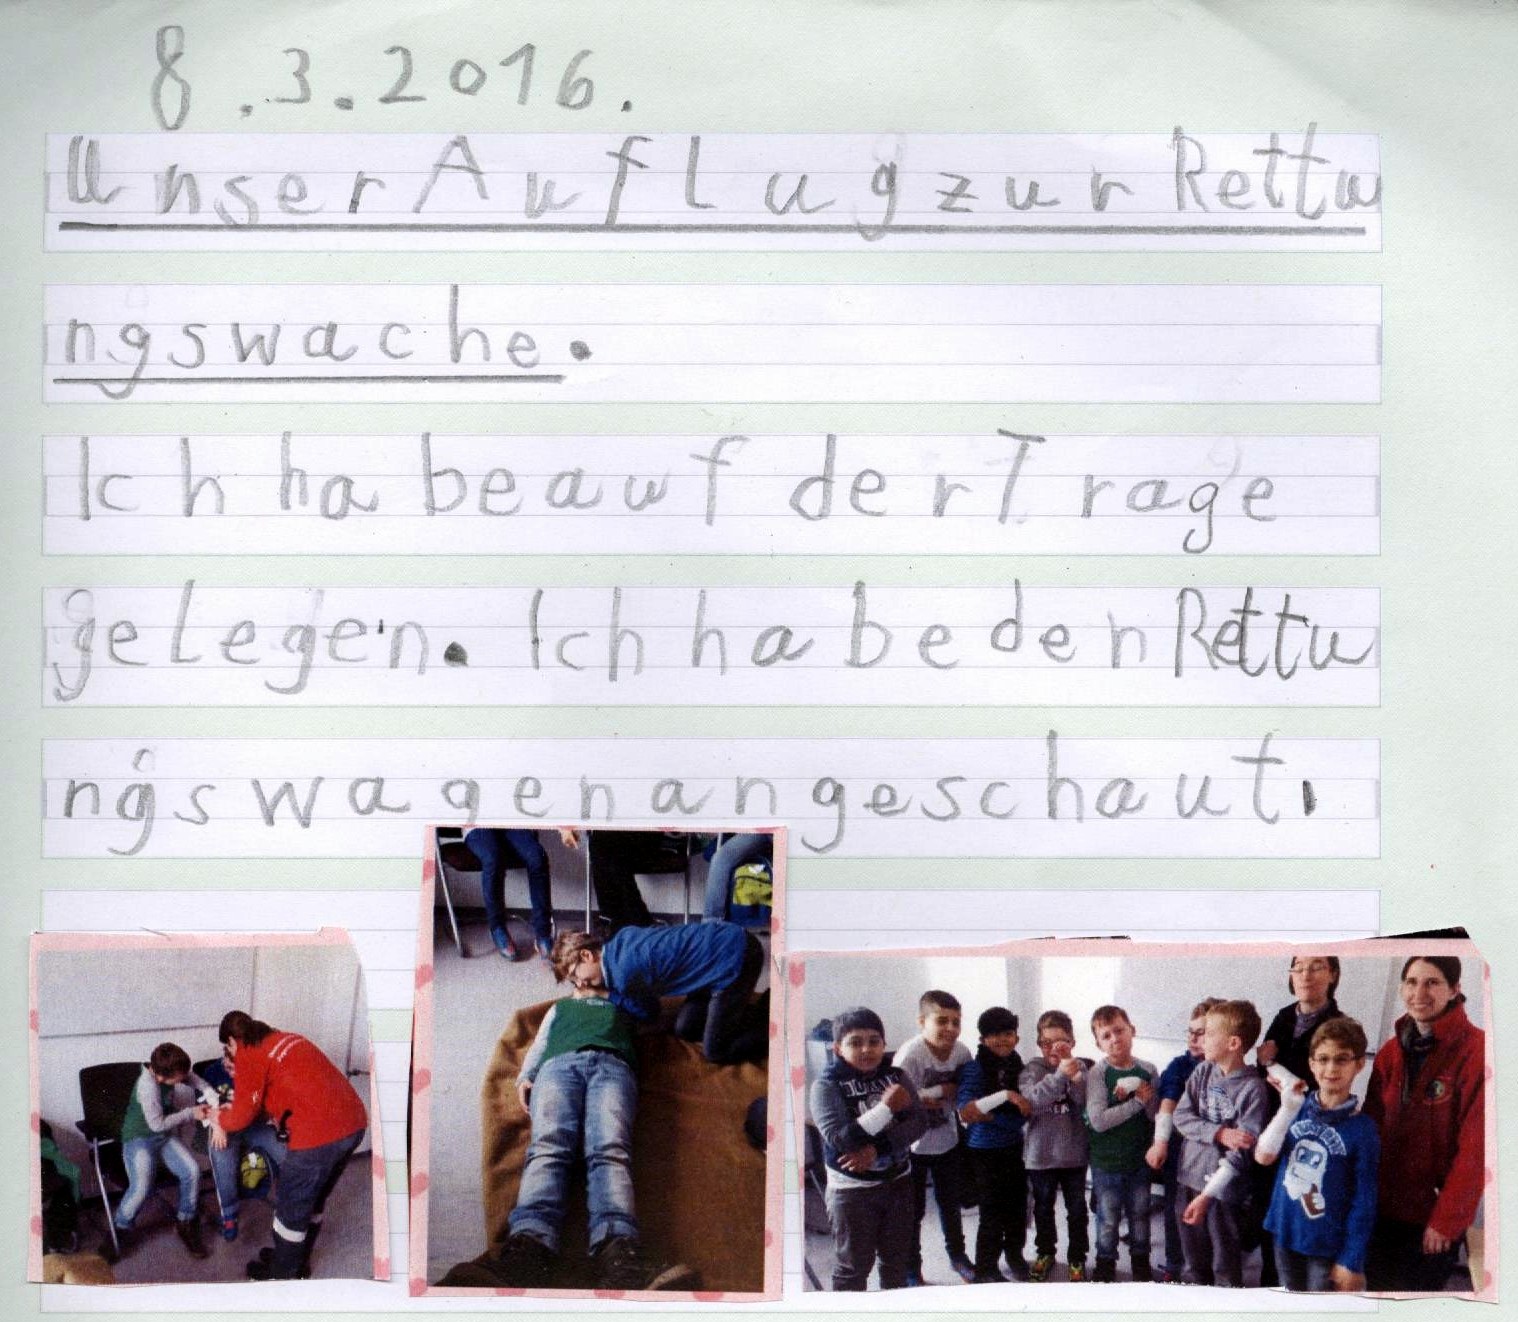 8.3.2016.
Unser Auflug zur Rettu
ngswache.
Ich habe auf der Trage
gelegen. Ich habe den Rettu
ngswagen angeschaut.